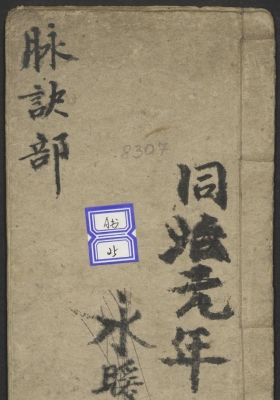 同治元年
水暖
脉訣部
8307
25